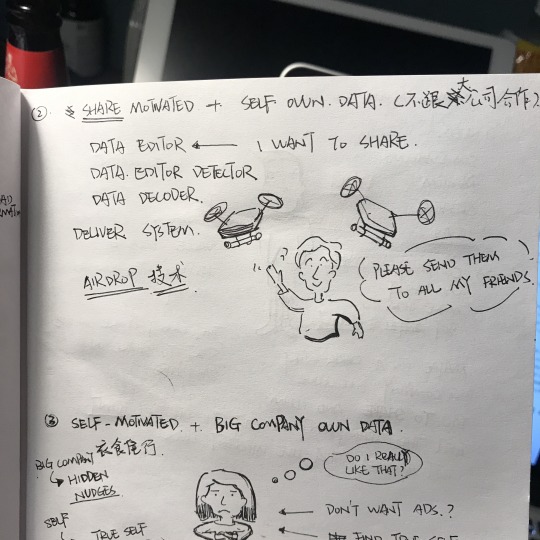 ② SHARE MOTIVATED + SELF OWN DATA. (不跟大公司合作)
DATA EDITOR ← I WANT TO SHARE.
DATA EDITOR DETECTOR
DATA DECODER.
DELIVER SYSTEM.
AIRDROP 技术
PLEASE SEND THEM
TO ALL MY FRIENDS.
③ SELF-MOTIVATED. + BIG COMPANY OWN DATA.
BIG COMPANY 衣食住行.
↳ HIDDEN
NUDGES
DO I REALLY
LIKE THAT?
SELF
↳ TRUE SELF
← DON'T WANT ADS.?
← FIND TRUE SELF